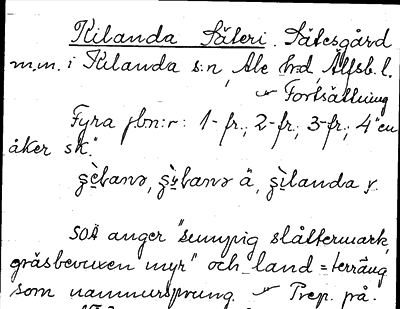 Kilanda Säteri. Sätesgård
m.m. i Kilanda s:n, Ale hd, Älfsb. l.
Fortsättning
Fyra jbn:r: 1-fr., 2-fr., 3-fr., 4 "en
åker sk."
ä, y.
SOÄ anger "sumpig slåttermark,
gräsbevuxen myr" och land = terräng
som namnursprung. Prep. på.